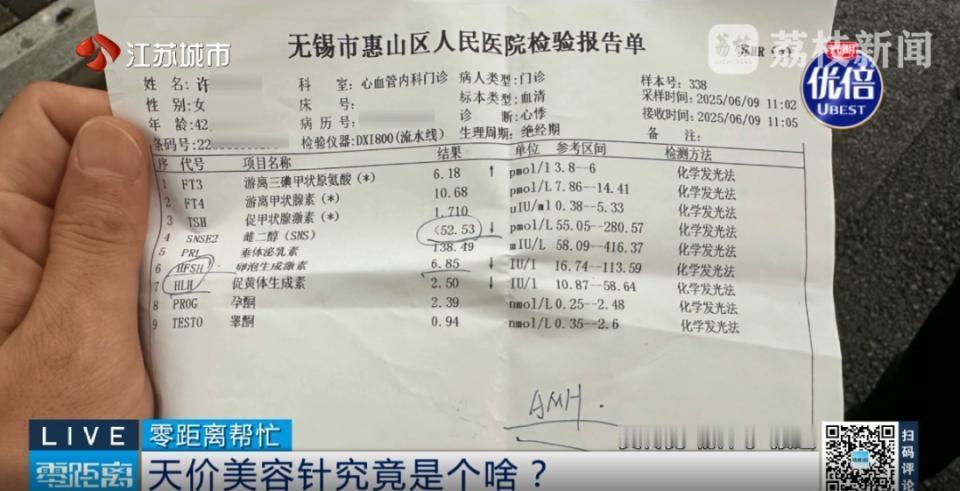 江苏城市
荔枝新闻
优倍
UBEST
无锡市惠山区人民医院检验报告单
姓 名:许 科 室:心血管内科门诊 病人类型:门诊 样本号:338
性 别:女 床 号: 标本类型:血清 采样时间:2025/06/09 11:02
年 龄:42 病 历 号: 诊 断:心悸 接收时间:2025/06/09 11:05
条码号:22 检验仪器:DXI800(流水线) 生理周期:绝经期 备 注:
序 代号 项目名称 结果 单位 参考区间 检测方法
1 FT3 游离三碘甲状原氨酸(*) 6.18 ↑ pmol/l 3.8--6 化学发光法
2 FT4 游离甲状腺素(*) 10.68 pmol/L 7.86--14.41 化学发光法
3 TSH 促甲状腺激素(*) 1.710 uIU/ml 0.38--5.33 化学发光法
4 SNSE2 雌二醇(SNS) <52.53 ↓ pmol/L 55.05--280.57 化学发光法
5 PRL 垂体泌乳素 138.49 mIU/L 58.09--416.37 化学发光法
6 HFSH 卵泡生成激素 6.85 ↓ IU/l 16.74--113.59 化学发光法
7 HLH 促黄体生成素 2.50 ↓ IU/l 10.87--58.64 化学发光法
8 PROG 孕酮 2.39 nmol/L 0.25--2.48 化学发光法
9 TESTO 睾酮 0.94 nmol/L 0.35--2.6 化学发光法
AMH.
LIVE 零距离帮忙
零距离 天价美容针究竟是个啥？
扫码评论